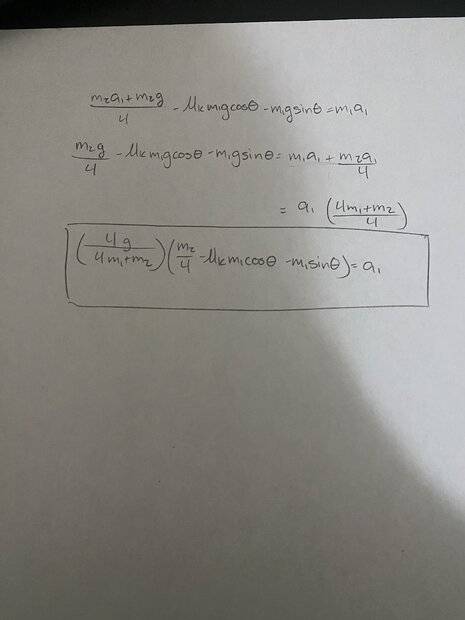 (m₂a₁+m₂g)/4 - μₖm₁gcosθ - m₁gsinθ = m₁a₁
m₂g/4 - μₖm₁gcosθ - m₁gsinθ = m₁a₁ + m₂a₁/4
= a₁ ((4m₁+m₂)/4)
(4g/(4m₁+m₂)) (m₂/4 - μₖm₁cosθ - m₁sinθ) = a₁